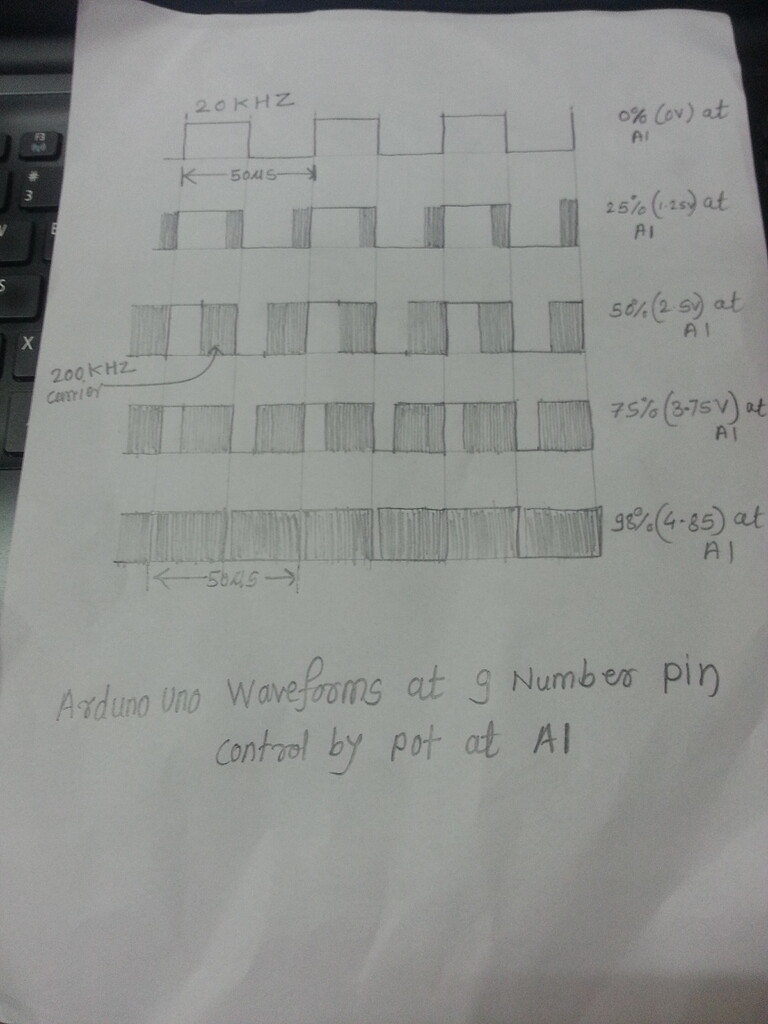 20KHZ
0% (0V) at
A1
50us
25% (1.25V) at
A1
50% (2.5V) at
A1
200KHZ
carrier
75% (3.75V) at
A1
98% (4.85) at
A1
50us
Arduno Uno Waveforms at 9 Number pin
control by pot at A1
F3
#
3
E
S
X